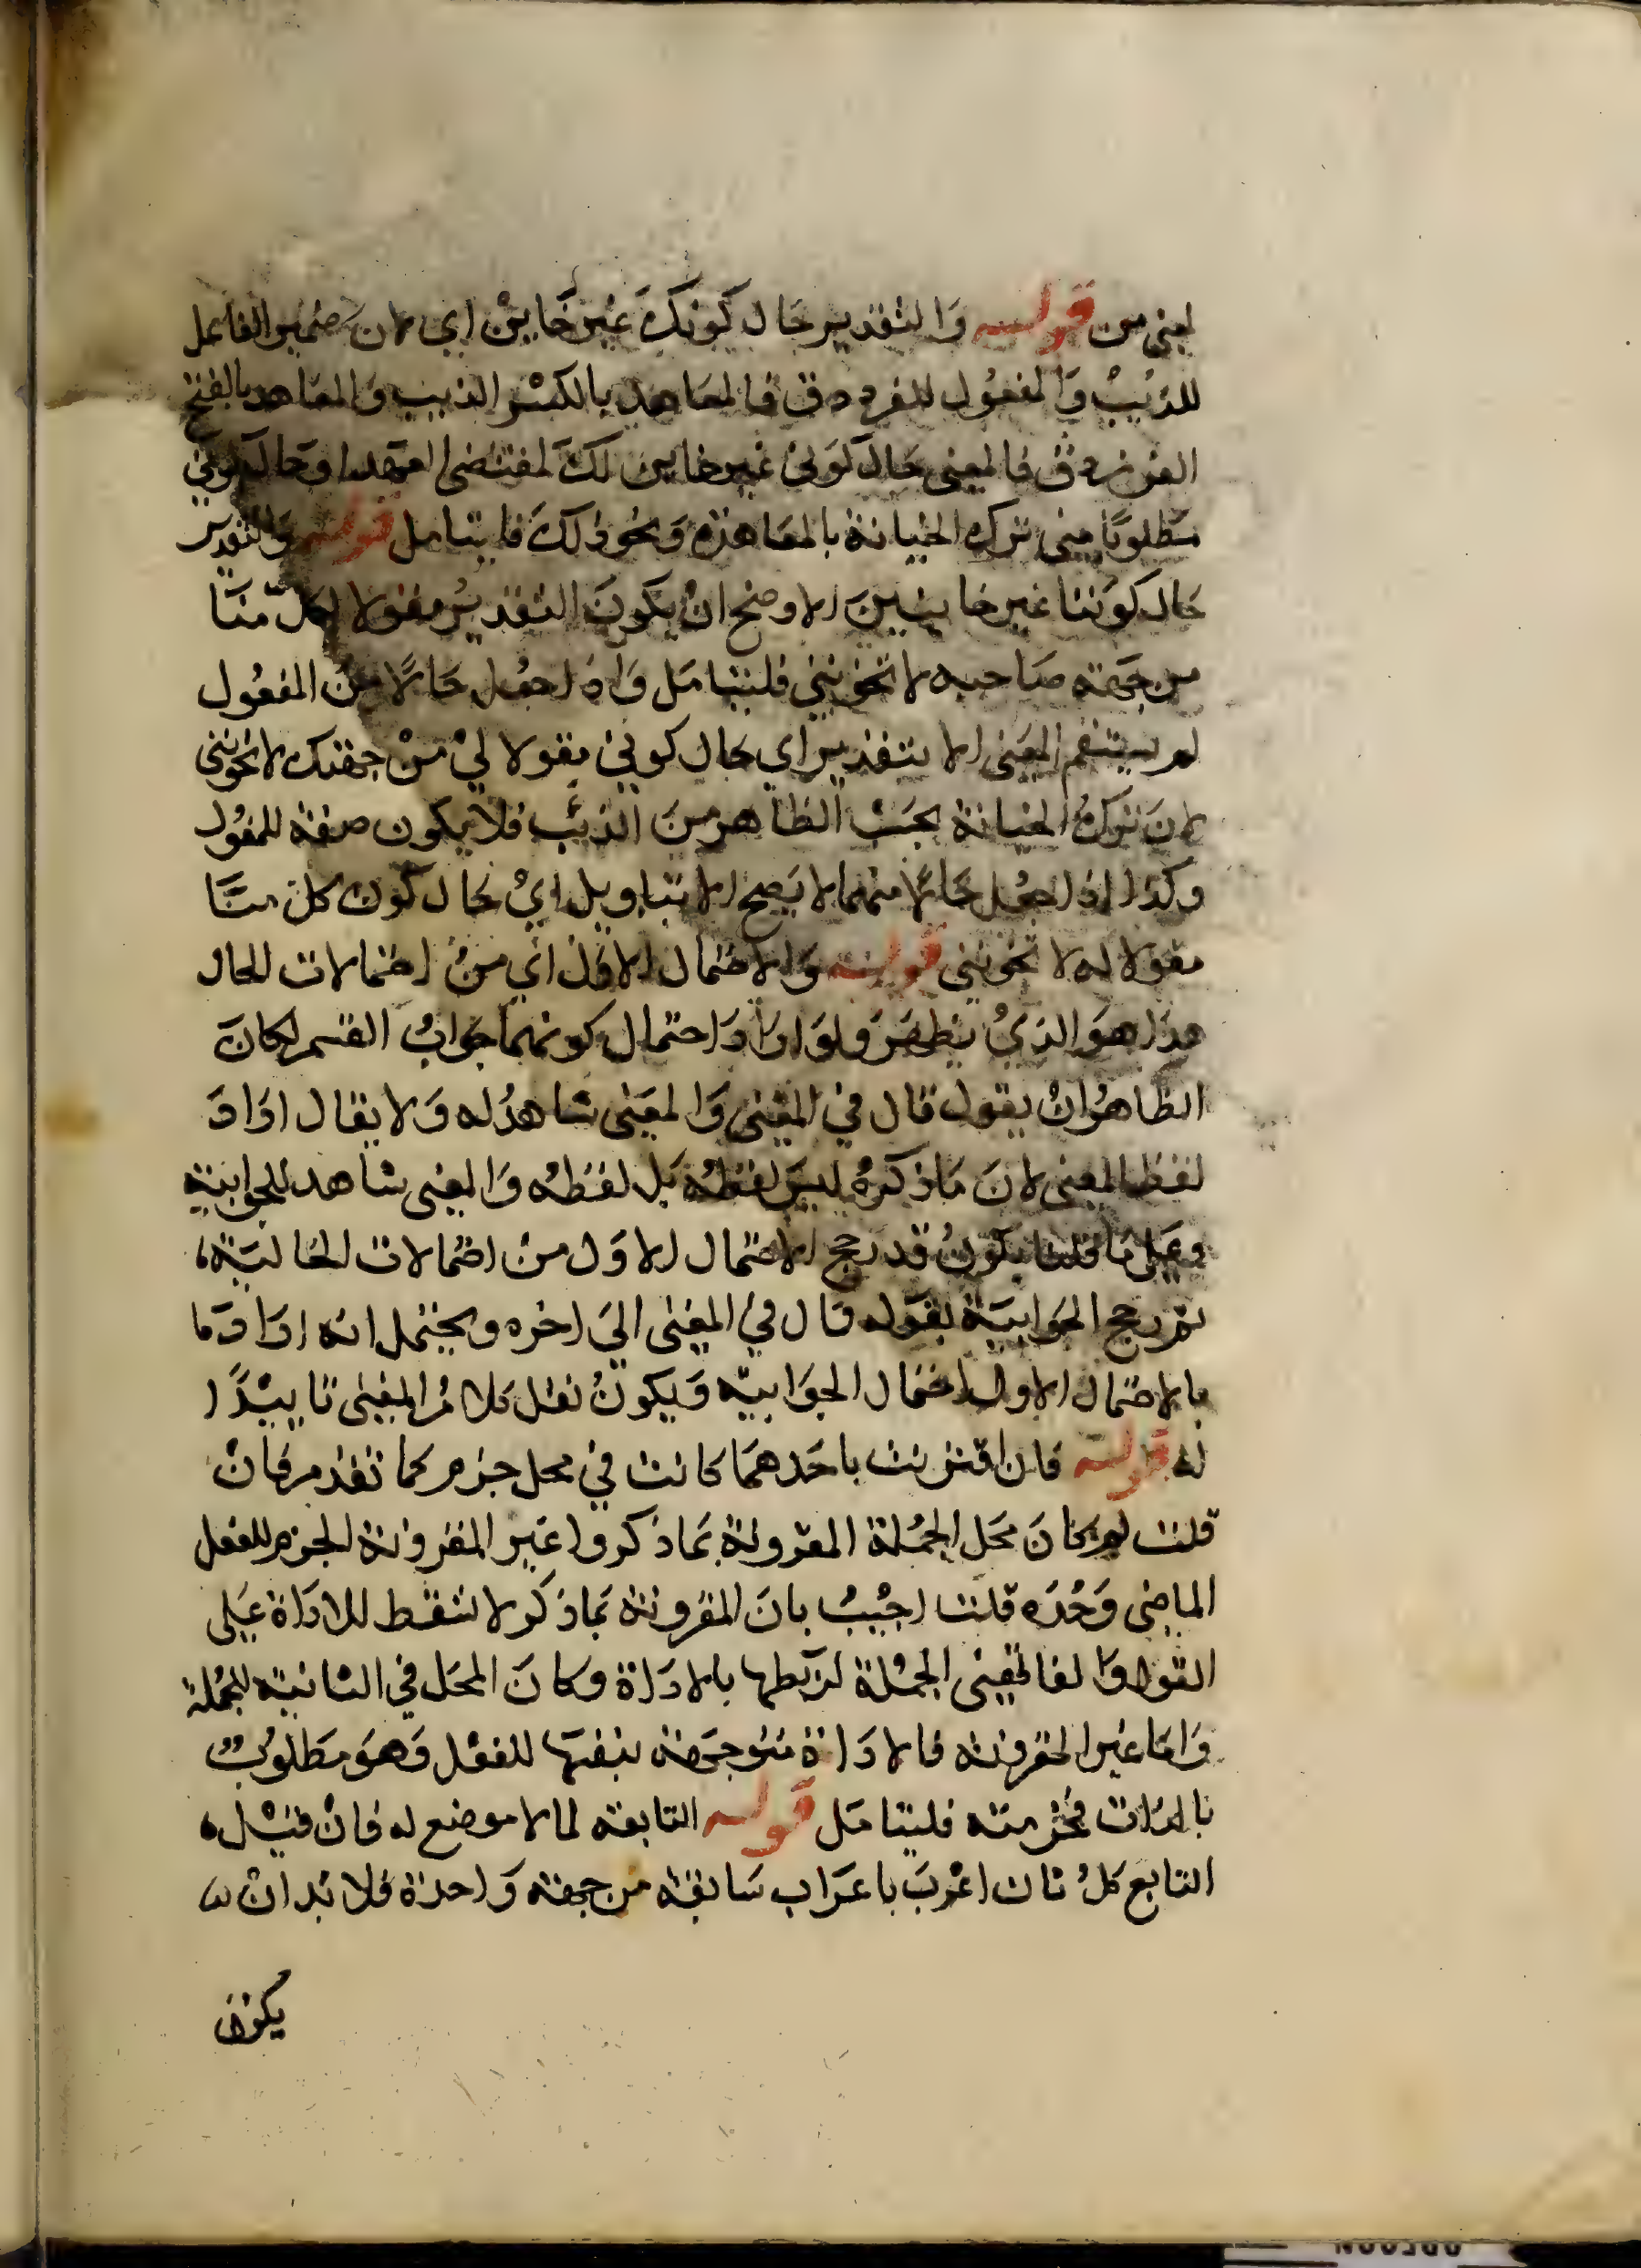 لمني من قوله وَالتقدير حَال كونكَ غير خَاين اي لان ضمير الفاعل
للذيبْ وَالمفعُول للفرزدق فالمعَاهد بالكسْر الذيب وَالمعَاهد بالفتح
الفرزدق فالمعنى حَال كوني غير خاين لكَ لمقتضى العهد اوحَال كوني
مَطلوبًا مني ترك الخيانة بالمعَاهدة وَنحو ذالكَ فليتامل قوله وَالتقدير
حَال كوننا غير خاينينَ الاوضح انْ يكونَ التقديرُ مقولا لكلّ منّا
من جهَة صَاحبه لا تخونني فليتامَل وَاذا جعُل حَالًا منْ المفعُول
لم يستقم المعَنى الا بتقدير اي حال كوني مقولا ليْ منْ جهتك لا تخونني
لانَ تركُ الخيانة بحَسَبْ الظاهر منَ الذئب فلا يكون صفة للمفعُول
وكذا اذا جعُل حَالًا منهما لا يَصح الا بتاويل ايْ حَال كون كلّ منّا
مقولا له لا تخونني قوله وَالاحتمال الاول أي منْ احتمالات الحال
هذا هوَ الذيُ يَظهَر وَلوَ ارَادَ احتمال كونهما جوابُ القسم لكانَ
الظاهرُ انْ يقول قال في المغني وَالمعَنى شاهدُ له وَلا يقال ارَادَ
لفظ المعنى لانَ مَا ذكرهُ ليسَ لفظهُ بَل لفظهُ وَالمعنى شاهد للجوابية
وعَلى مَا قلنا يكونُ قد رجح الاحتمال الاوَل منْ احتمالات الحالية،
ثم رجح الجَوابيَة بقوَله قال فيُ المغني اليَ اخره ويحتمل انه ارَادَ مَا
بالاحتمال الاول احتمال الجوَابية وَيكونُ نقل كلامُ المغنى تاييدًا
له قوله فان اقترنت باحَدهمَا كانت في محل جزم كما تقدم فانْ
قلت لم كانَ محَل الجمُلة المقرونة بمَا ذكروا غيَر المقرونة الجزم للفعل
الماضي وَحْدَه قلت اجْيبُ بانَ المقرونة بمَا ذكر لا تتسَلط للادَاة عَلي
وَامَا غير المقرونة فالادَاة متوَجهَة بنفسهَا للفعْل وَهوَ مَطلوبْ
فليتامَل قوله التابعة لما لا موضع له فانْ قيْل،
التابع كلُ ثان اعْربَ باعرَاب سَابقه من جهة وَاحدة فلا بُد انْ
يكون